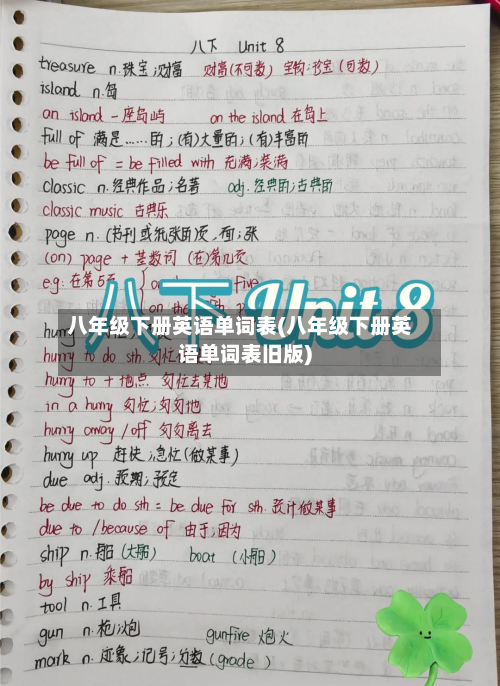 八下 Unit 8
treasure n.珠宝;财富 财富(不可数) 宝物;珍宝(可数)
island n.岛
an island 一座岛屿 on the island 在岛上
full of 满是……的;(有)大量的;(有)丰富的
be full of = be filled with 充满;装满
classic n.经典作品;名著 adj.经典的;古典的
classic music 古典乐
page n.(书刊或纸张的)页,面;张
(on) page + 基数词 (在)第几页
e.g:在第5页
five
on the
八下 Unit 8
八年级下册英语单词表(八年级下册英
语单词表旧版)
hurry to do sth.匆忙
hurry to + 地点 匆忙去某地
in a hurry 匆忙;匆匆地
hurry away / off 匆匆离去
hurry up 赶快;急忙(做某事)
due adj.预期;预定
be due to do sth = be due for sth.预计做某事
due to / because of 由于;因为
ship n.船(大船) boat (小船)
by ship 乘船
tool n.工具
gun n.枪;炮 gunfire 炮火
mark n.迹象;记号;分数(grade)